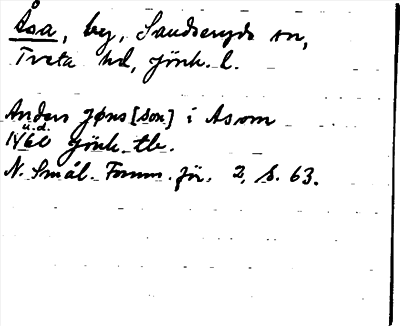 Åsa, by, Sandseryds sn,
Tveta hd, Jönk. l.
Anders Jøns[son] i Asom
u.d.
1460 Jönk. tb.
N. Smål. Fornm. för. 2, s. 63.